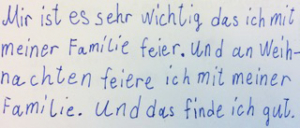 Mir ist es sehr wichtig das ich mit
meiner Familie feier. Und an Weih-
nachten feiere ich mit meiner
Familie. Und das finde ich gut.